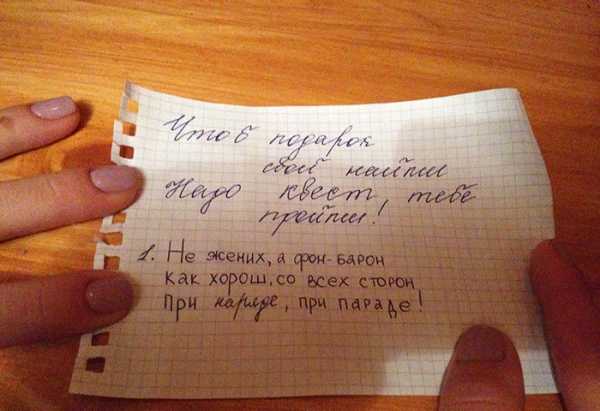 Чтоб подарок
свой найти
Надо квест, тебе
пройти!
1. Не жених, а фон-барон
Как хорош, со всех сторон,
При наряде, при параде!